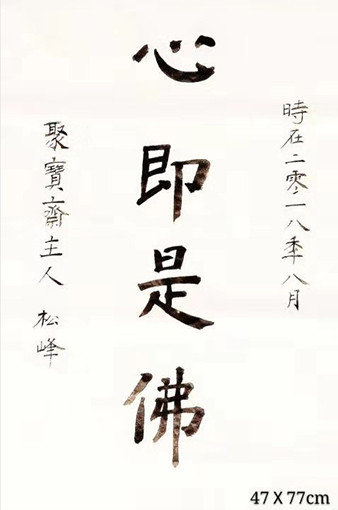 時在二零一八季八月
心即是佛
聚寶齋主人 松峰
47X77cm